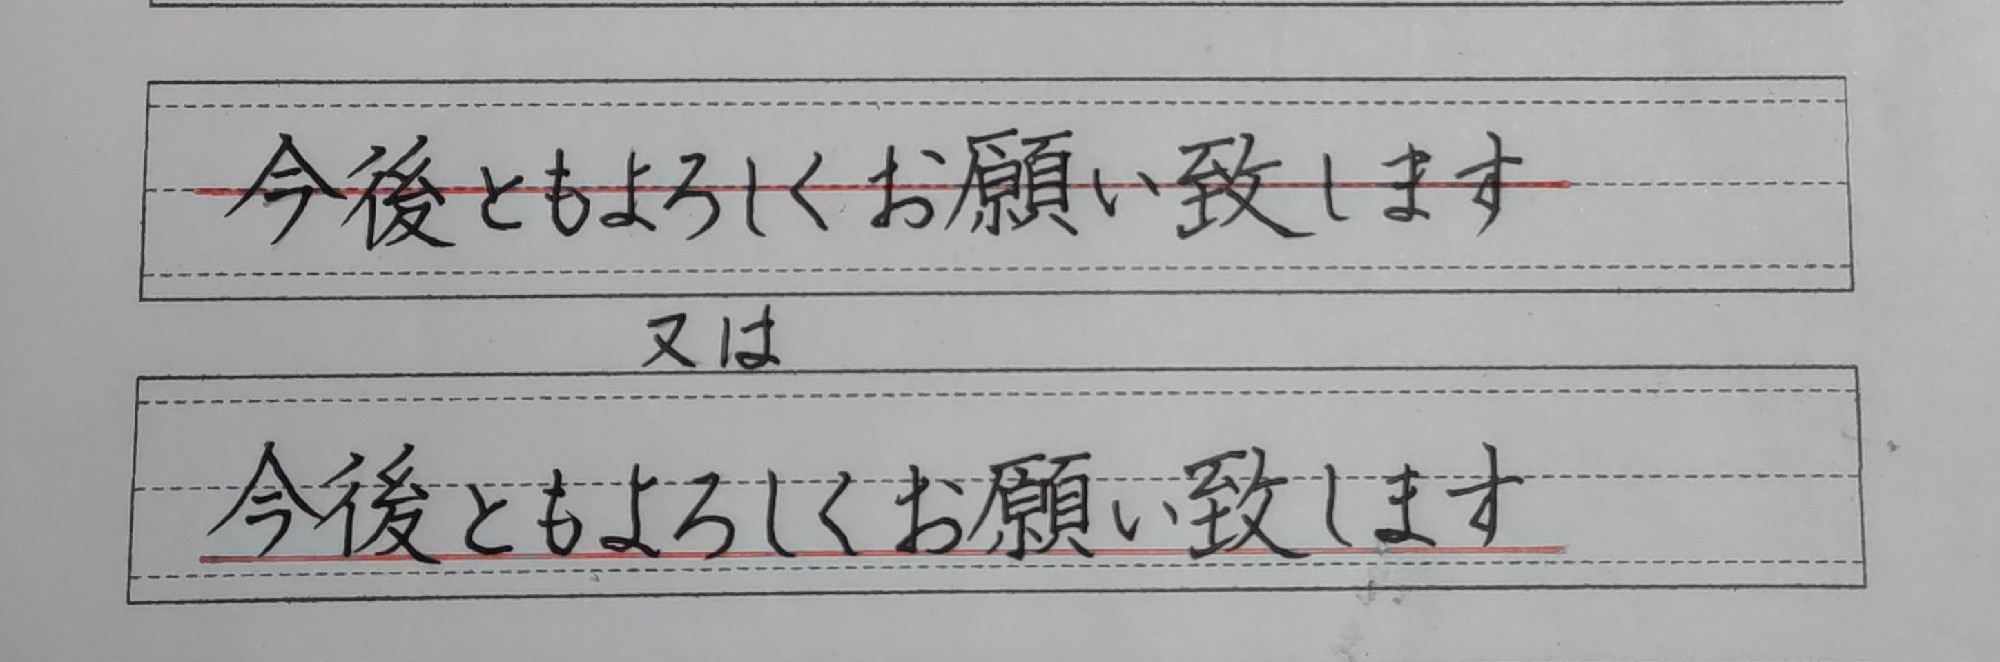 今後ともよろしくお願い致します
又は
今後ともよろしくお願い致します